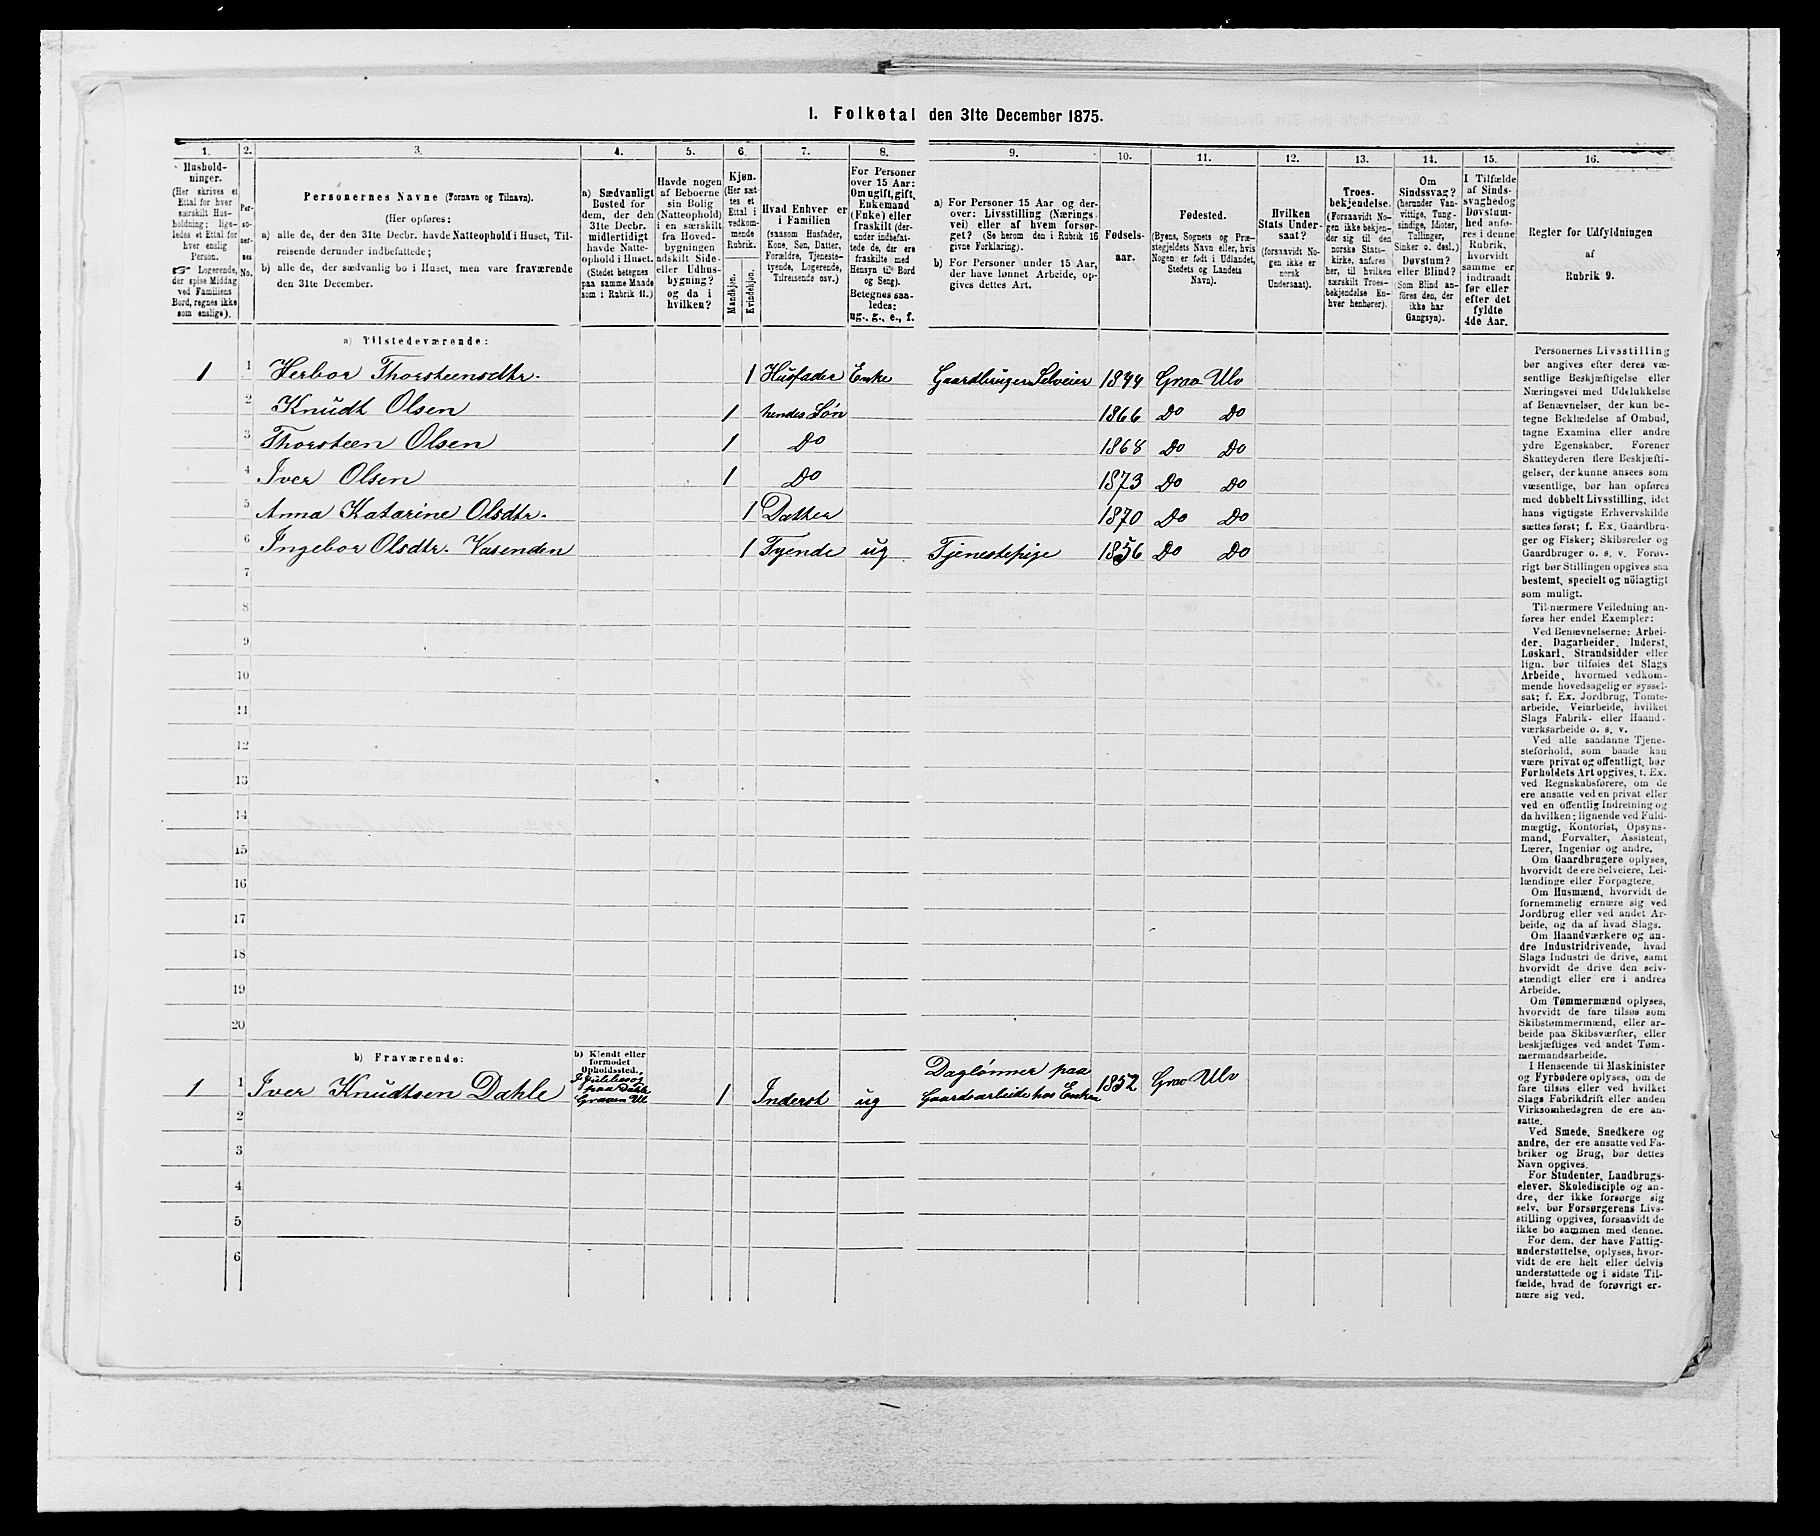 1. Folketal den 31te December 1875.
1. 2. 3. 4. 5. 6. 7. 8. 9. 10. 11. 12. 13. 14. 15. 16.
Hushold-
ninger.
(Her skrives et
Ettal for hver
særskilt Hus-
holdning; lige-
ledes et Ettal for
hver enslig
Person.
☞ Logerende,
der spise Middag
ved Familiens
Bord, regnes ikke
som enslige).
Per-
so-
ner-
nes
No.
Personernes Navne (Fornavn og Tilnavn).
(Her opføres:
a) alle de, der den 31te Decbr. havde Natteophold i Huset, Til-
reisende derunder indbefattede;
b) alle de, der sædvanlig bo i Huset, men vare fraværende
den 31te December.
a) Sædvanligt
Bosted for
dem, der den
31te Decbr.
midlertidigt
havde Natte-
ophold i Huset.
(Stedet betegnes
paa samme Maade
som i Rubrik 11.)
Havde nogen
af Beboerne
sin Bolig
(Natteophold)
i en særskilt
fra Hoved-
bygningen
adskilt Side-
eller Udhus-
bygning?
og da i
hvilken?
Kjøn.
(Her sæt-
tes et
Ettal i
vedkom-
mende
Rubrik.
Mandkjøn.
Kvindekjøn.
Hvad Enhver er
i Familien
(saasom Husfader,
Kone, Søn, Datter,
Forældre, Tjeneste-
tyende, Logerende,
Tilreisende osv.)
For Personer
over 15 Aar:
Om ugift, gift,
Enkemand
(Enke) eller
fraskilt (der-
under indbefat-
tede de, der ere
fraskilte med
Hensyn til Bord
og Seng).
Betegnes saa-
ledes:
ug., g., e., f.
a) For Personer 15 Aar og der-
over: Livsstilling (Nærings-
vei) eller af hvem forsør-
get? (Se herom den i Rubrik 16
givne Forklaring).
b) For Personer under 15 Aar,
der have lønnet Arbeide, op-
gives dettes Art.
Fødsels-
aar.
Fødested.
(Byens, Sognets og Præ-
stegjeldets Navn eller, hvis
Nogen er født i Udlandet,
Stedets og Landets
Navn).
Hvilken
Stats Under-
saat?
(forsaavidt No-
gen ikke er
norsk
Undersaat).
Troes-
bekjendelse.
(Forsaavidt No-
gen ikke bekjen-
der sig til den
norske Stats-
kirke, anføres
her, til hvilken
særskilt Troes-
bekjendelse En-
hver henhører).
Om
Sindssvag?
(herunder Van-
vittige, Tung-
sindige, Idioter,
Tullinger,
Sinker o. desl.)
Døvstum?
eller Blind?
(Som Blind an-
føres den, der
ikke har
Gangsyn).
I Tilfælde
af Sinds-
svaghed og
Døvstum-
hed anfø-
res i denne
Rubrik,
hvorvidt
samme er
indtraadt
før eller
efter det
fyldte
4de Aar.
Regler for Udfyldningen
af
Rubrik 9.
a) Tilstedeværende:
1 1 Herbor Thorsteensdtr. 1 Husfader Enke Gaardbruger Selveier 1844 Grav Ulv
2 Knudt Olsen 1 hendes Søn 1866 Do Do
3 Thorsteen Olsen 1 Do 1868 Do Do
4 Iver Olsen 1 Do 1873 Do Do
5 Anna Katarine Olsdtr. 1 Datter 1870 Do Do
6 Ingebor Olsdtr. Vasenden 1 Tyende ug Tjenestepige 1856 Do Do
7
8
9
10
11
12
13
14
15
16
17
18
19
20
b) Fraværende:
b) Kjendt eller
formodet
Opholdssted.
1 1 Iver Knudtsen Dahle paa Dahle Graven Ul 1 Inderst ug Daglønner paa Gaardsarbeide hos Enken 1852 Grav Ulv
2
3
4
5
6
Personernes Livsstilling
bør angives efter deres væ-
sentlige Beskjæftigelse eller
Næringsvei med Udelukkelse
af Benævnelser, der kun be-
tegne Beklædelse af Ombud,
tagne Examina eller andre
ydre Egenskaber. Forener
Skatteyderen flere Beskjæfti-
gelser, der kunne ansees som
væsentlige, bør han opføres
med dobbelt Livsstilling, idet
hans vigtigste Erhvervskilde
sættes først; f. Ex. Gaardbru-
ger og Fisker; Skibsreder og
Gaardbruger o. s. v. Forøv-
rigt bør Stillingen opgives saa
bestemt, specielt og nöiagtigt
som muligt.
Til nærmere Veiledning an-
føres her endel Exempler:
Ved Benævnelserne: Arbei-
der, Dagarbeider, Inderst,
Løskarl, Strandsidder eller
lign. bør tilføies det Slags
Arbeide, hvormed vedkom-
mende hovedsagelig er syssel-
sat; f. Ex. Jordbrug, Tomte-
arbeide, Veiarbeide, hvilket
Slags Fabrik- eller Haand-
værksarbeide o. s. v.
Ved alle saadanne Tjene-
steforhold, som baade kan
være privat og offentligt, bør
Forholdets Art opgives, t. Ex.
ved Regnskabsførere, om de
ere ansatte ved en privat eller
ved en offentlig Indretning og
da hvilken; lignende ved Fuld-
mægtig, Kontorist, Opsyns-
mand, Forvalter, Assistent,
Lærer, Ingeniør og andre.
Om Gaardbrugere oplyses,
hvorvidt de ere Selveiere, Lei-
lændinge eller Forpagtere.
Om Husmænd, hvorvidt de
fornemmelig ernære sig ved
Jordbrug eller ved andet Ar-
beide, og da af hvad Slags.
Om Haandværkere og an-
dre Industridrivende, hvad
Slags Industri de drive, samt
hvorvidt de drive den selv-
stændigt eller ere i andres
Arbeide.
Om Tømmermænd oplyses,
hvorvidt de fare tilsøs som
Skibstømmermænd, eller ar-
beide paa Skibsværfter, eller
beskjæftiges ved andet Tøm-
mermandsarbeide.
I Henseende til Maskinister
og Fyrbødere oplyses, om de
fare tilsøs eller ved hvilket
Slags Fabrikdrift eller anden
Virksomhedsgren de ere an-
satte.
Ved Smede, Snedkere og
andre, der ere ansatte ved Fa-
briker og Brug, bør dettes
Navn opgives.
For Studenter, Landbrugs-
elever, Skoledisciple og an-
dre, der ikke forsørge sig
selv, bør Forsørgerens Livs-
stilling opgives, forsaavidt de
ikke bo sammen med denne.
For dem, der have Fattig-
understøttelse, oplyses, hvor-
vidt de ere helt eller delvis
understøttede og i sidste Til-
fælde, hvad de forøvrigt er-
nære sig ved.